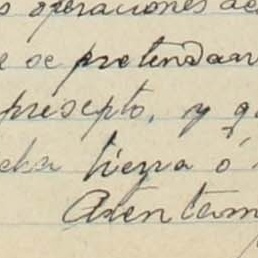 operaciones de
e se pretendaan
presepto, y q
cha tiezra ó
Aten tam